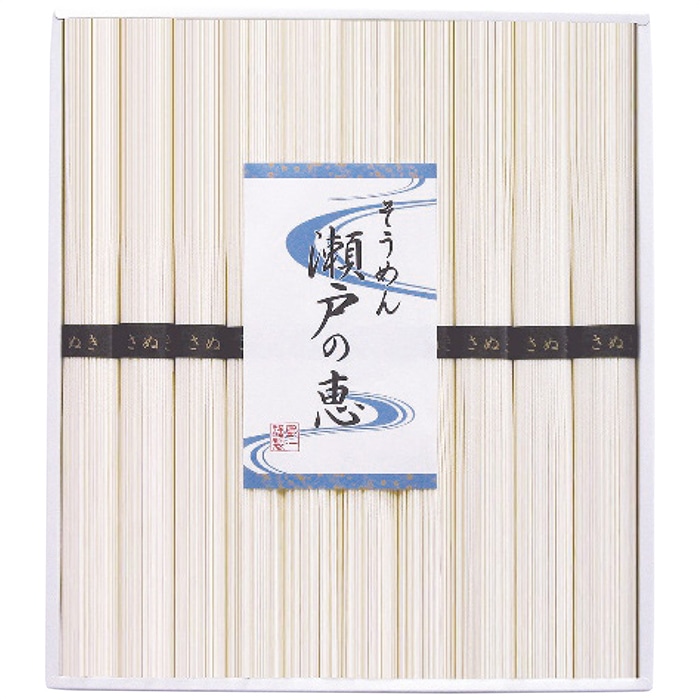 そうめん
瀬戸の恵
ぬき
さぬ
さぬ
きぬ
さぬ
さぬ